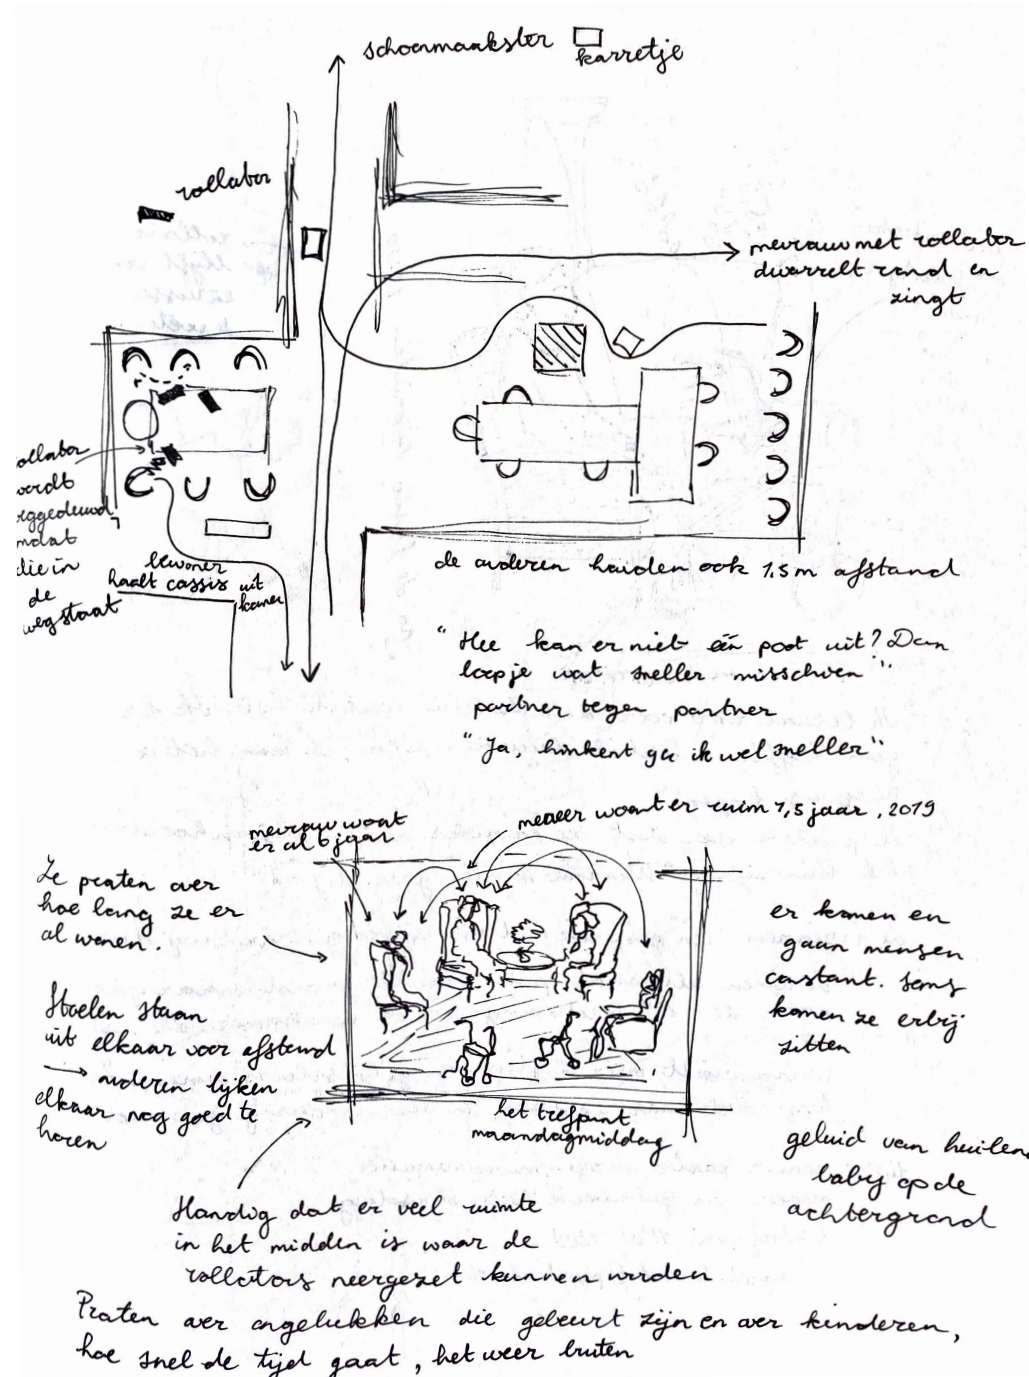 schoonmaakster
karretje
rollator
mevrouw met rollator
dwarrelt rond en
zingt
rollator
wordt
weggeduwd,
omdat
die in
de
weg staat
bewoner
haalt cassis uit
kamer
de ouderen houden ook 1,5 m afstand
"Hee kan er niet één poot uit? Dan
loop je wat sneller misschien"
partner tegen partner
"Ja, hinkent ga ik wel sneller"
mevrouw woont
er al 6 jaar
meneer woont er ruim 1,5 jaar, 2019
Ze praten over
hoe lang ze er
al wonen.
Stoelen staan
uit elkaar voor afstand
→ ouderen lijken
elkaar nog goed te
horen
er komen en
gaan mensen
constant. Soms
komen ze erbij
zitten
het trefpunt
maandagmiddag
geluid van huilen
baby op de
achtergrond
Handig dat er veel ruimte
in het midden is waar de
rollators neergezet kunnen worden
Praten over ongelukken die gebeurt zijn en over kinderen,
hoe snel de tijd gaat, het weer buiten